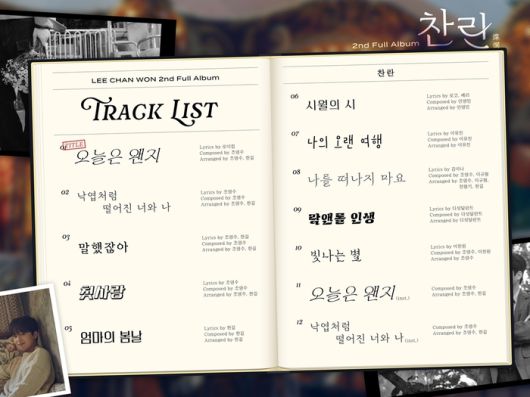 2nd Full Album 찬란
LEE CHAN WON 2nd Full Album
TRACK LIST
TITLE
오늘은 왠지
Lyrics by 로이킴
Composed by 조영수
Arranged by 조영수, 한길
02
낙엽처럼
떨어진 너와 나
Lyrics by 조영수
Composed by 조영수
Arranged by 조영수, 한길
03
말했잖아
Lyrics by 조영수, 한길
Composed by 조영수, 한길
Arranged by 조영수, 한길
04
첫사랑
Lyrics by 한길
Composed by 조영수
Arranged by 조영수, 한길
05
엄마의 봄날
Lyrics by 한길
Composed by 한길
Arranged by 한길
찬란
06
시월의 시
Lyrics by 로코, 베리
Composed by
Arranged by
07
나의 오랜 여행
Lyrics by 이유진
Composed by 이유진
Arranged by 이유진
08
나를 떠나지 마요
Lyrics by 김이나
Composed by 조영수, 이규형
Arranged by 조영수, 이규형,
한길
09
락앤롤 인생
Lyrics by 다섯달란트
Composed by 다섯달란트
Arranged by 다섯달란트
10
빛나는 별
Lyrics by 이찬원
Composed by 조영수, 이찬원
Arranged by 조영수
11
오늘은 왠지 (inst.)
Composed by 조영수
Arranged by 조영수, 한길
12
낙엽처럼
떨어진 너와 나 (inst.)
Composed by 조영수
Arranged by 조영수, 한길